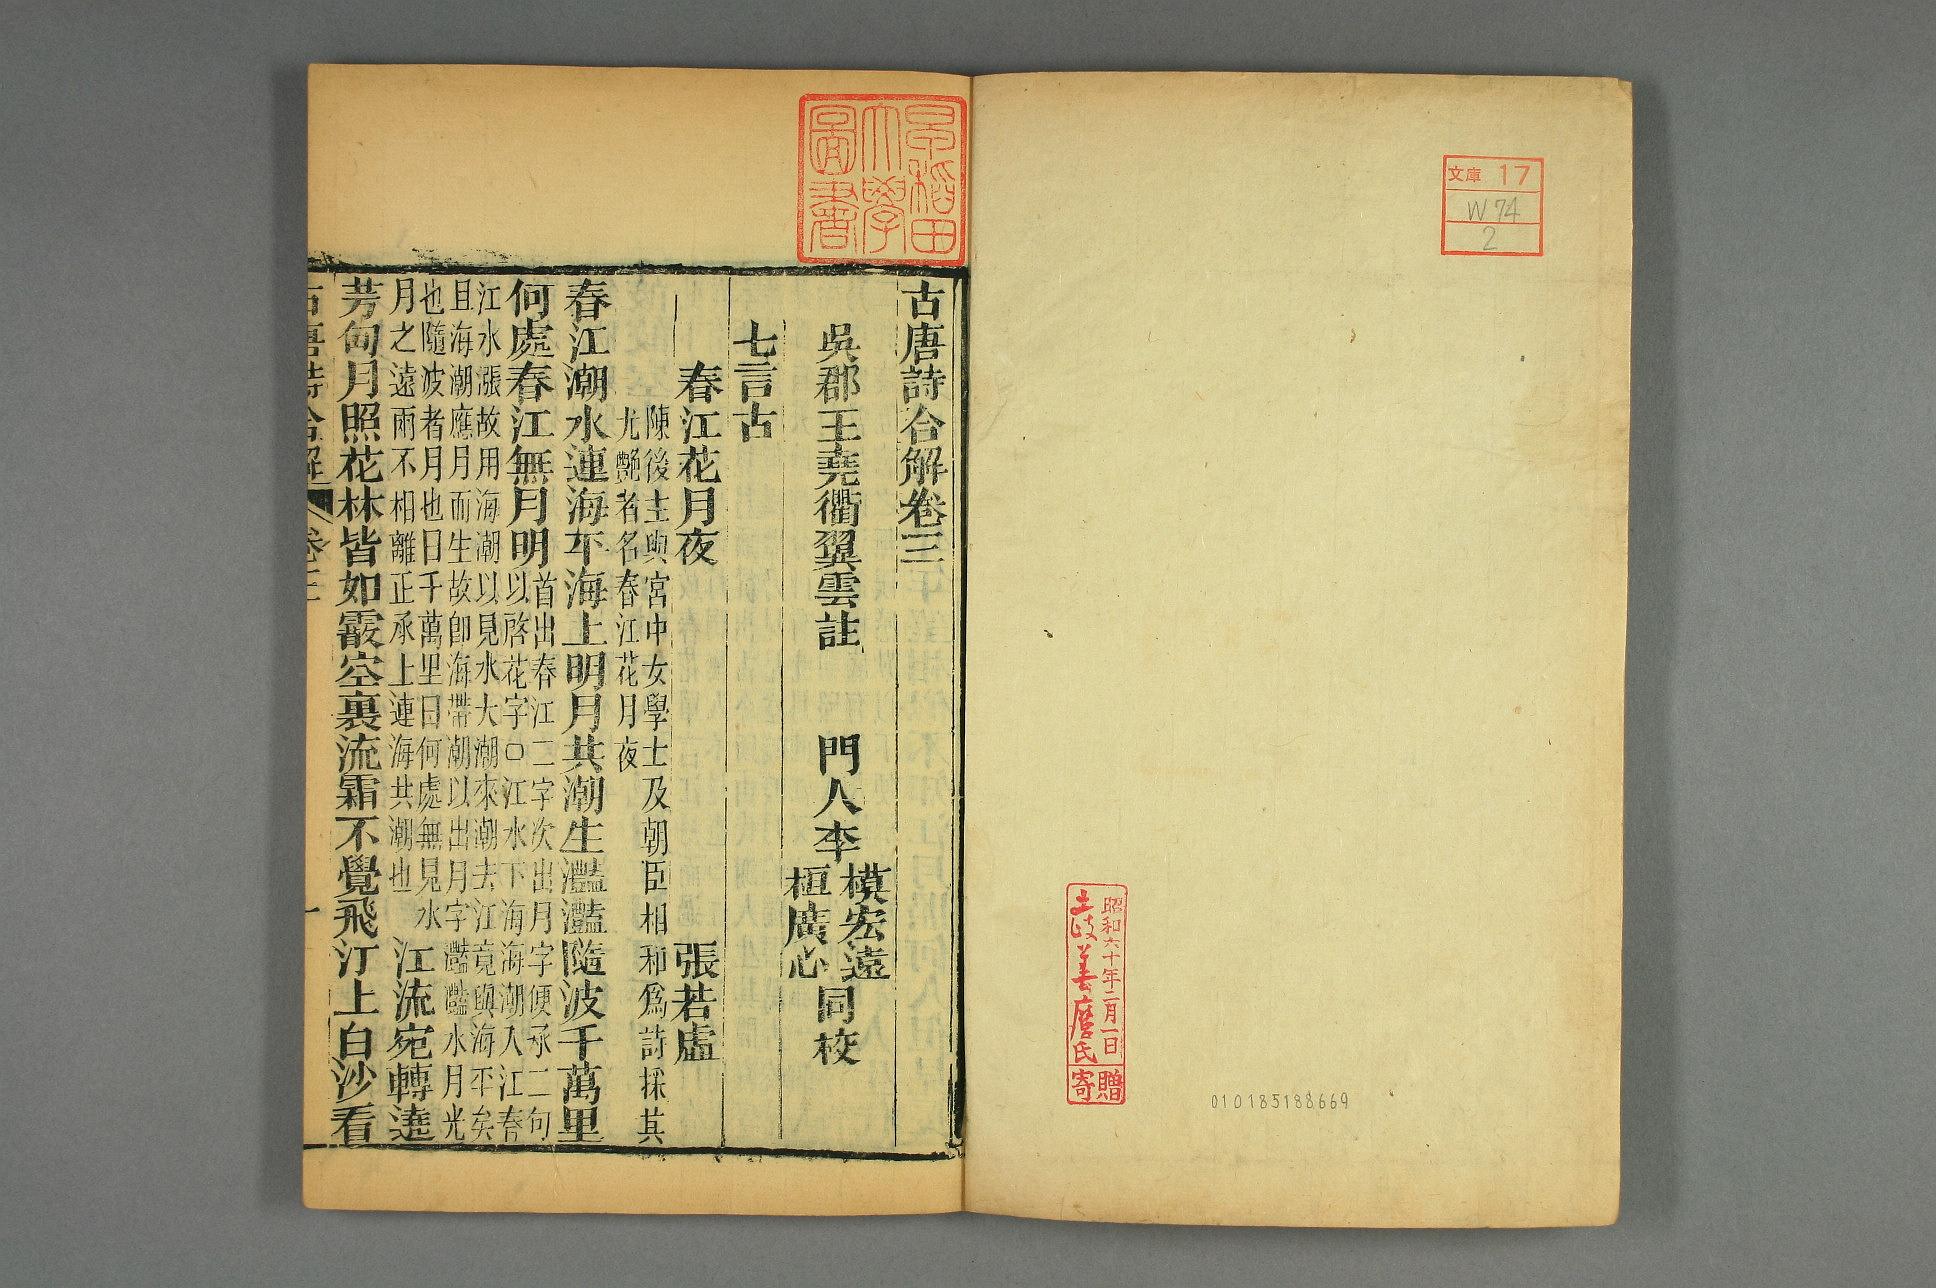 文庫 17
W74
2
昭和六十年二月一日
土岐善麿氏
寄贈
010185188669
早稲田大學圖書
古唐詩合解卷三
吳郡王堯衢翼雲註　門人李
模宏遠
桓廣心
同校
七言古
春江花月夜　張若虛
陳後主與宮中女學士及朝臣相和爲詩採其
尤艷者名春江花月夜
春江潮水連海平海上明月共潮生灩灩隨波千萬里
何處春江無月明
首出春江二字次出月字便承二句
以啓花字○江水下海海潮入江春
江水漲故用海潮以見水大潮來潮去江竟與海平矣
且海潮應月而生故卽海帶潮以出月字灩灩水月光
也隨波者月也曰千萬里曰何處無見水
月之遠雨不相離正承上連海共潮也
江流宛轉遶
芳甸月照花林皆如霰空裏流霜不覺飛汀上白沙看
古唐詩合解　卷三　一